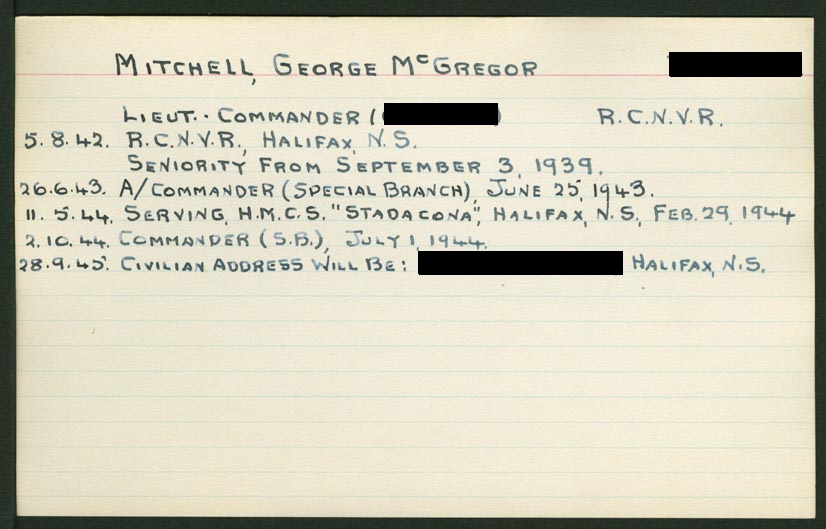 MITCHELL, GEORGE McGREGOR
LIEUT.. COMMANDER ( ) R.C.N.V.R.
5.8.42. R.C.N.V.R., HALIFAX, N.S.
SENIORITY FROM SEPTEMBER 3, 1939.
26.6.43. A/COMMANDER (SPECIAL BRANCH), JUNE 25, 1943.
11.5.44. SERVING, H.M.C.S. "STADACONA", HALIFAX, N.S., FEB. 29, 1944
2.10.44. COMMANDER (S.B.), JULY 1, 1944.
28.9.45. CIVILIAN ADDRESS WILL BE: HALIFAX, N.S.